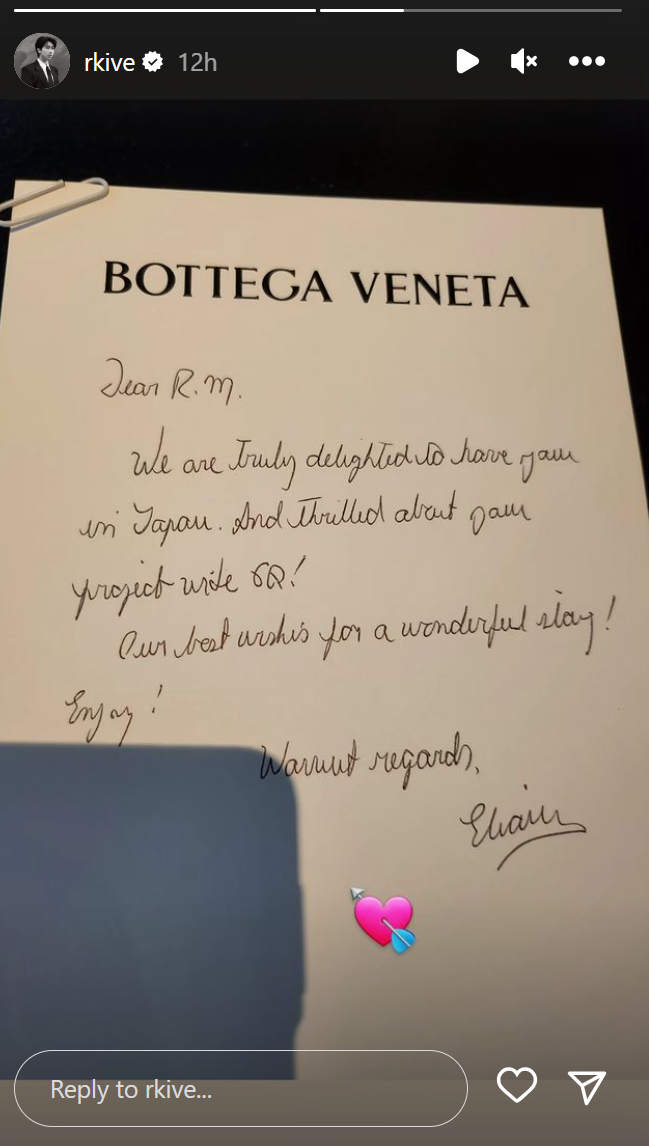 rkive 12h
BOTTEGA VENETA
Dear R.M.
We are truly delighted to have you
in Japan. And thrilled about your
project with GQ!
Our best wishes for a wonderful stay!
Enjoy!
Warmest regards,
Reply to rkive...